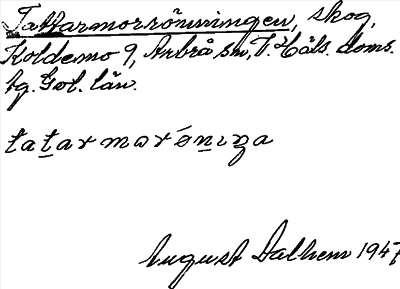 Tattarmorrönningen, skog,
Koldemo 9, Arbrå sn, V. Häls. doms.
tg. Gvl. län.
August Dalhem 1947